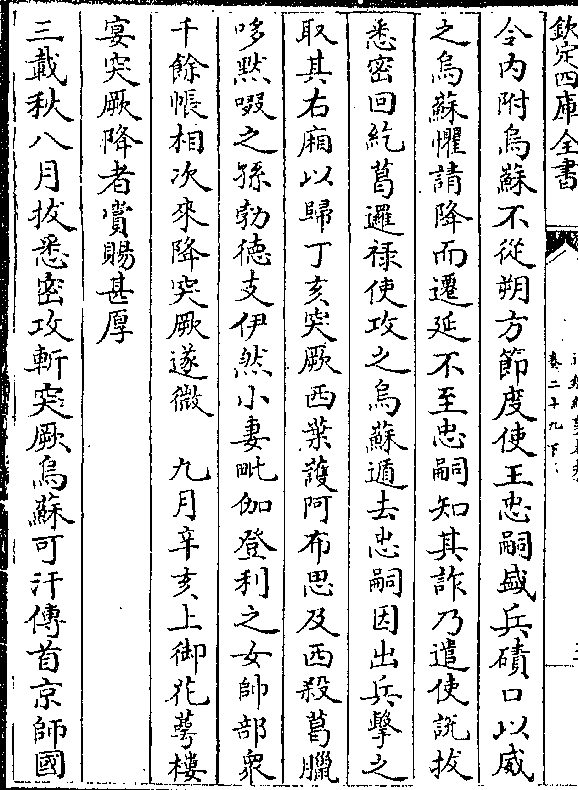 欽定四庫全書
卷二十九下
令内附烏蘇不從朔方節度使王忠嗣盛兵磧口以威
之烏蘇懼請降而遷延不至忠嗣知其詐乃遣使説拔
悉密回紇葛邏禄使攻之烏蘇遁去忠嗣因出兵擊之
取其右廂以歸丁亥突厥西葉護阿布思及西殺葛臘
哆黙啜之孫勃徳支伊然小妻毗伽登利之女帥部衆
千餘帳相次來降突厥遂微　九月辛亥上御花萼樓
宴突厥降者賞賜甚厚
三載秋八月拔悉密攻斬突厥烏蘇可汗傳首京師國